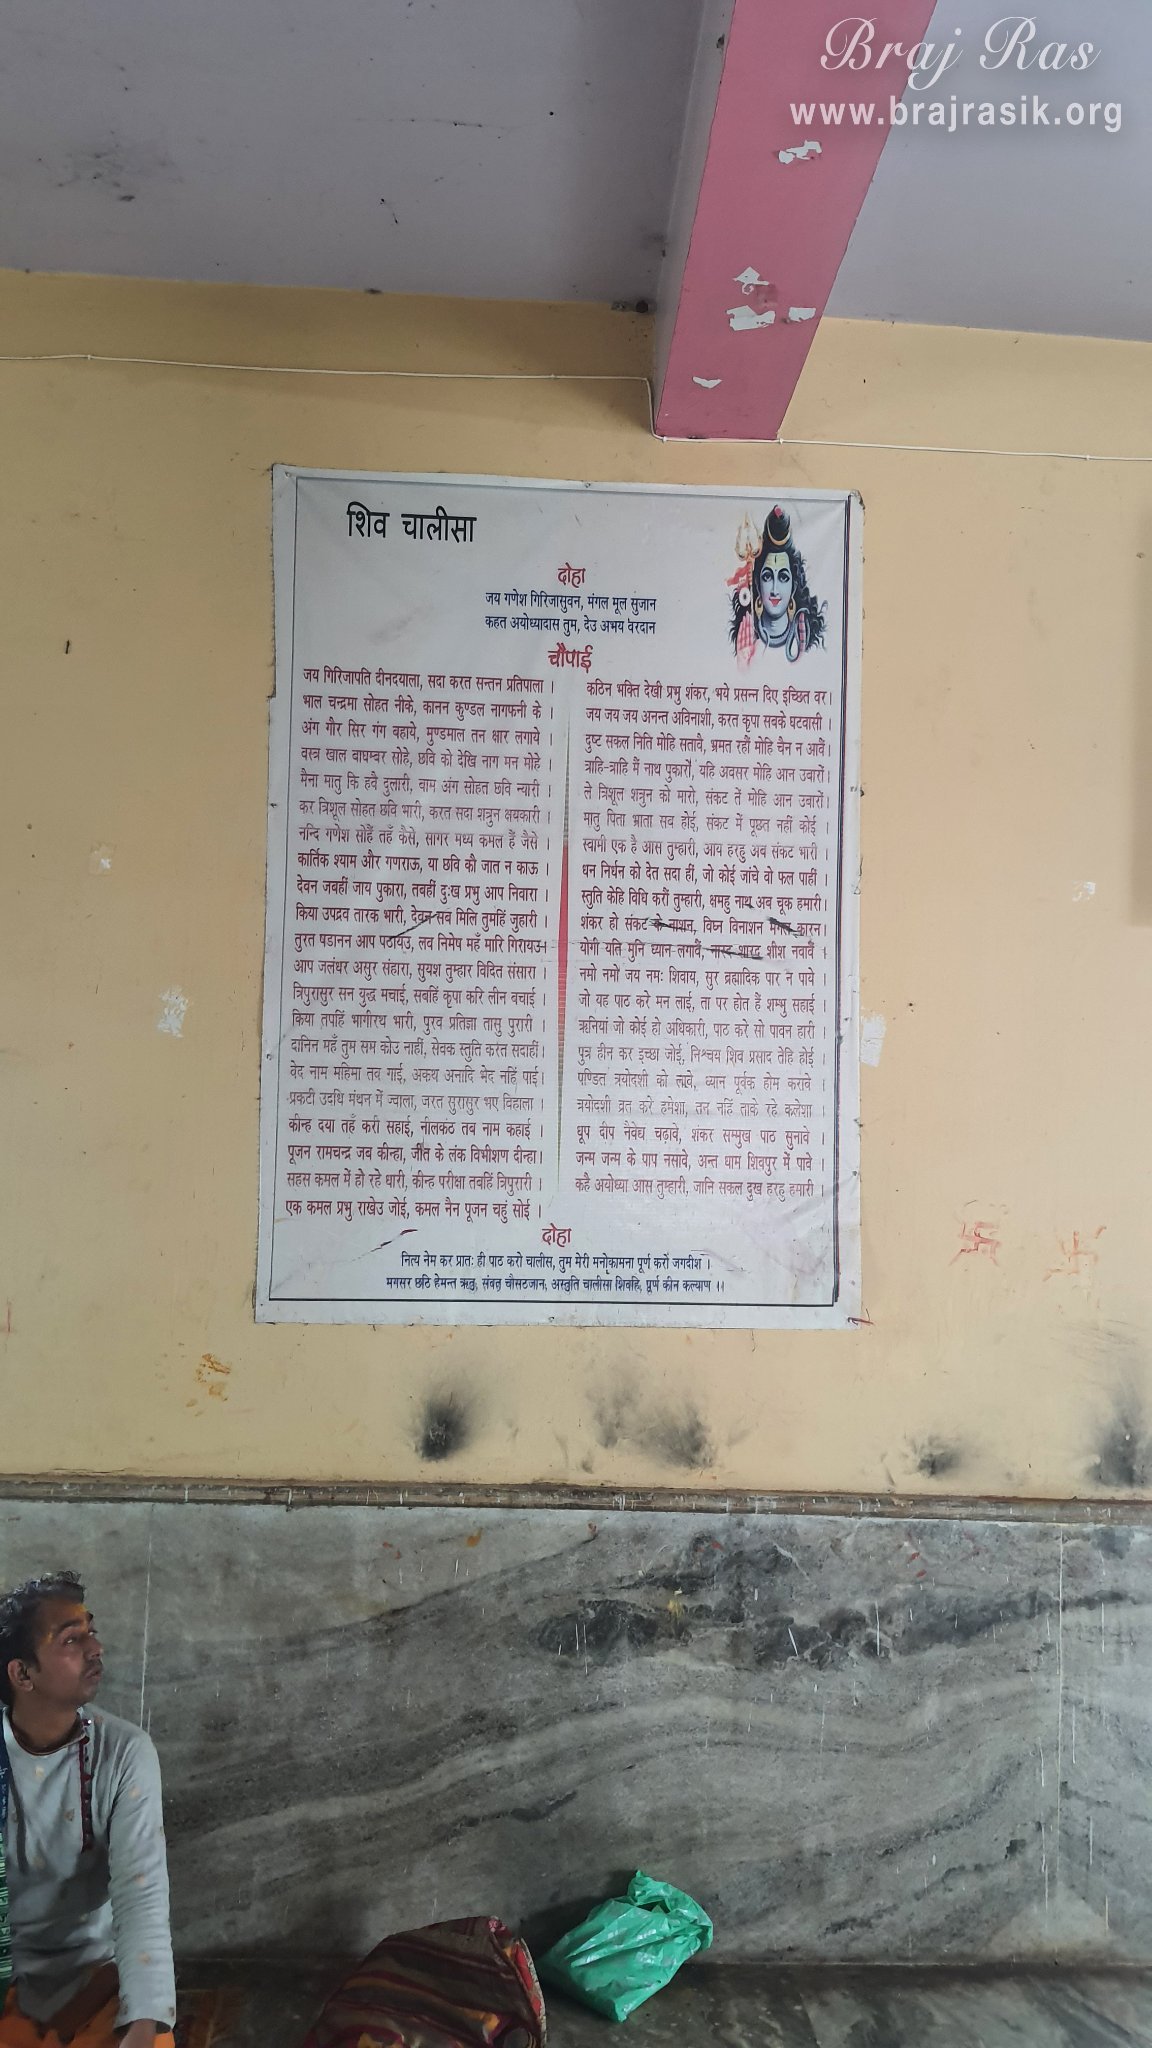 Braj Ras
www.brajrasik.org
शिव चालीसा
दोहा
जय गणेश गिरिजासुवन, मंगल मूल सुजान
कहत अयोध्यादास तुम, देउ अभय वरदान
चौपाई
जय गिरिजापति दीनदयाला, सदा करत सन्तन प्रतिपाला ।
भाल चन्द्रमा सोहत नीके, कानन कुण्डल नागफनी के ।
अंग गौर सिर गंग बहाये, मुण्डमाल तन क्षार लगाये ।
वस्त्र खाल वाघम्वर सोहे, छवि को देखि नाग मन मोहे ।
मैना मातु कि हवै दुलारी, वाम अंग सोहत छवि न्यारी ।
कर त्रिशूल सोहत छवि भारी, करत सदा शत्रुन क्षयकारी ।
नन्दि गणेश सोहैं तहँ कैसे, सागर मध्य कमल हैं जैसे ।
कार्तिक श्याम और गणराऊ, या छवि कौ जात न काऊ ।
देवन जवहीं जाय पुकारा, तवहीं दुःख प्रभु आप निवारा ।
किया उपद्रव तारक भारी, देवन सव मिलि तुमहिं जुहारी ।
तुरत षडानन आप पठायउ, लव निमेष महँ मारि गिरायउ।
आप जलंधर असुर संहारा, सुयश तुम्हार विदित संसारा ।
त्रिपुरासुर सन युद्ध मचाई, सबहिं कृपा करि लीन वचाई ।
किया तपहिं भागीरथ भारी, पुरव प्रतिज्ञा तासु पुरारी ।
दानिन महँ तुम सम कोउ नाहीं, सेवक स्तुति करत सदाहीं।
वेद नाम महिमा तव गाई, अकथ अनादि भेद नहिं पाई।
प्रकटी उदधि मंथन में ज्वाला, जरत सुरासुर भए विहाला ।
कीन्ह दया तहँ करी सहाई, नीलकंठ तव नाम कहाई ।
पूजन रामचन्द्र जव कीन्हा, जीत के लंक विभीशण दीन्हा।
सहस कमल में हो रहे धारी, कीन्ह परीक्षा तवहिं त्रिपुरारी ।
एक कमल प्रभु राखेउ जोई, कमल नैन पूजन चहुं सोई ।
कठिन भक्ति देखी प्रभु शंकर, भये प्रसन्न दिए इच्छित वर।
जय जय जय अनन्त अविनाशी, करत कृपा सवके घटवासी ।
दुष्ट सकल निति मोहि सतावै, भ्रमत रहौं मोहि चैन न आवैं।
त्राहि-त्राहि मैं नाथ पुकारों, यहि अवसर मोहि आन उवारों।
ले त्रिशूल शत्रुन को मारो, संकट तें मोहि आन उवारों।
मातु पिता भ्राता सव होई, संकट में पूछत नहीं कोई ।
स्वामी एक है आस तुम्हारी, आय हरहु अव संकट भारी ।
धन निर्धन को देत सदा हीं, जो कोई जांचे वो फल पाहीं ।
स्तुति केहि विधि करौं तुम्हारी, क्षमहु नाथ अव चूक हमारी।
शंकर हो संकट के नाशन, विघ्न विनाशन मंगल कारन।
योगी यति मुनि ध्यान लगावैं, नारद शारद शीश नवावैं ।
नमो नमो जय नमः शिवाय, सुर ब्रह्मादिक पार न पाये ।
जो यह पाठ करे मन लाई, ता पर होत हैं शम्भु सहाई ।
ऋनियां जो कोई हो अधिकारी, पाठ करे सो पावन हारी ।
पुत्र हीन कर इच्छा जोई, निश्चय शिव प्रसाद तेहि होई ।
पण्डित त्रयोदशी को लावे, ध्यान पूर्वक होम करावे ।
त्रयोदशी व्रत करे हमेशा, तन नहिं ताके रहे कलेशा ।
धूप दीप नैवेद्य चढ़ावे, शंकर सम्मुख पाठ सुनावे ।
जन्म जन्म के पाप नसावे, अन्त धाम शिवपुर में पावे ।
कहै अयोध्या आस तुम्हारी, जानि सकल दुख हरहु हमारी ।
दोहा
नित्य नेम कर प्रातः ही पाठ करो चालीस, तुम मेरी मनोकामना पूर्ण करो जगदीश ।
मगसर छठि हेमन्त ऋतु, संवत् चौसठजान, अस्तुति चालीसा शिवहि, पूर्ण कीन कल्याण ।।